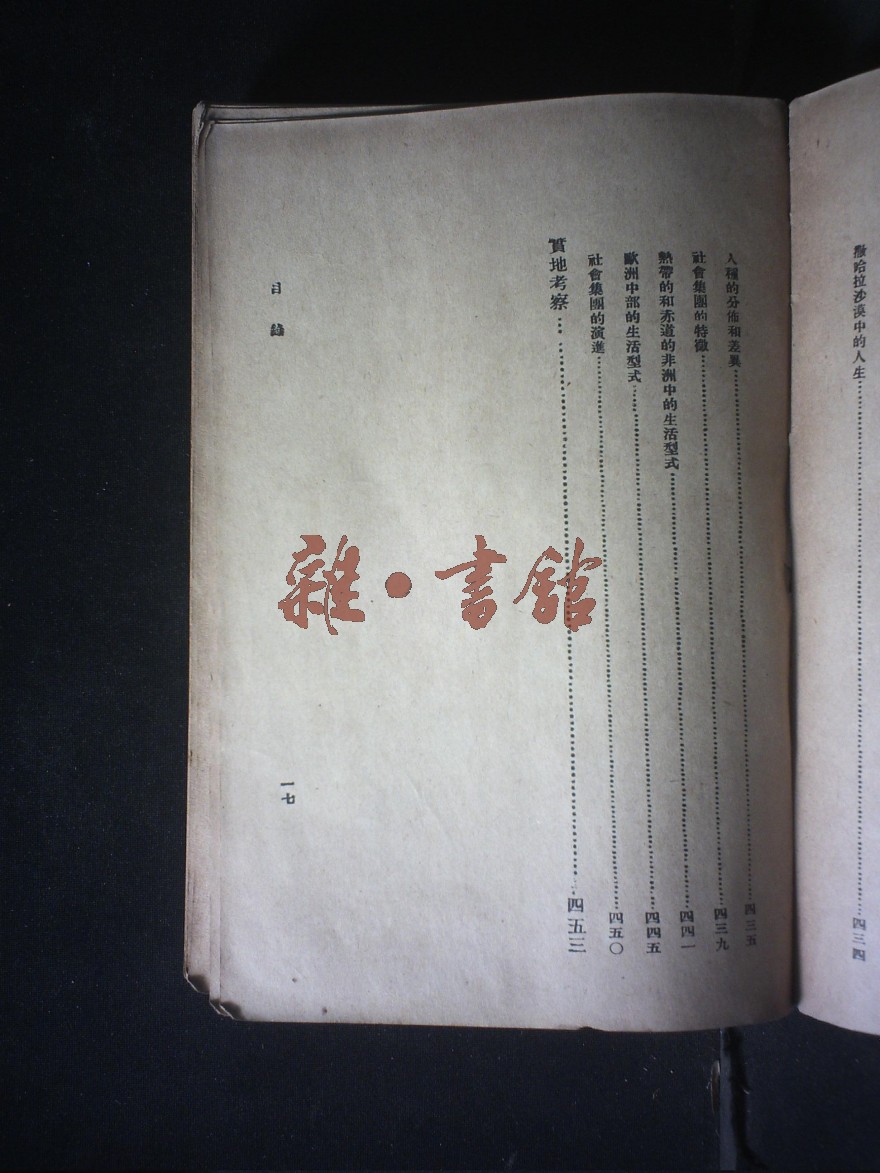 撒哈拉沙漠中的人生⋯⋯四三四
人種的分佈和差異⋯⋯四三五
社會集團的特徵⋯⋯四三九
熱帶的和赤道的非洲中的生活型式⋯⋯四四一
歐洲中部的生活型式⋯⋯四四五
社會集團的演進⋯⋯四五〇
實地考察⋯⋯四五三
目錄
一七
雜·書館